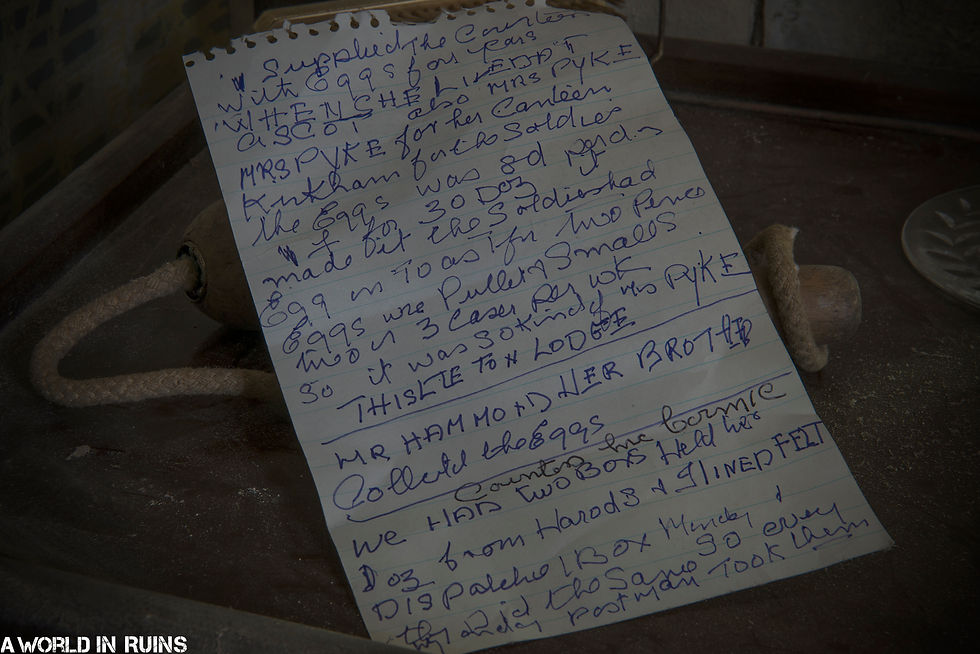 I Supplied the Canteen
with Eggs for years
WHEN SHE LIVED AT
ASCOT also MRS PYKE
MRS PYKE for her Canteen
Kirkham for the Soldiers
the Eggs was 8d per dz
for 30 Doz
made it the Soldies had
Egg in To as I for two Pence
Eggs were Pullet & Smalls.
two or 3 Cases Per wk
So it was So Kind of Mrs PYKE
THISLETON LODGE
MR HAMMOND HER BROTHER
Collected the Eggs
Countess
WE HAD TWO BOXS Held
Doz from Harods & I LINED FELT
DISPatched 1 Box Monday &
the Same so every
Postman TOOK them
A WORLD IN RUINS